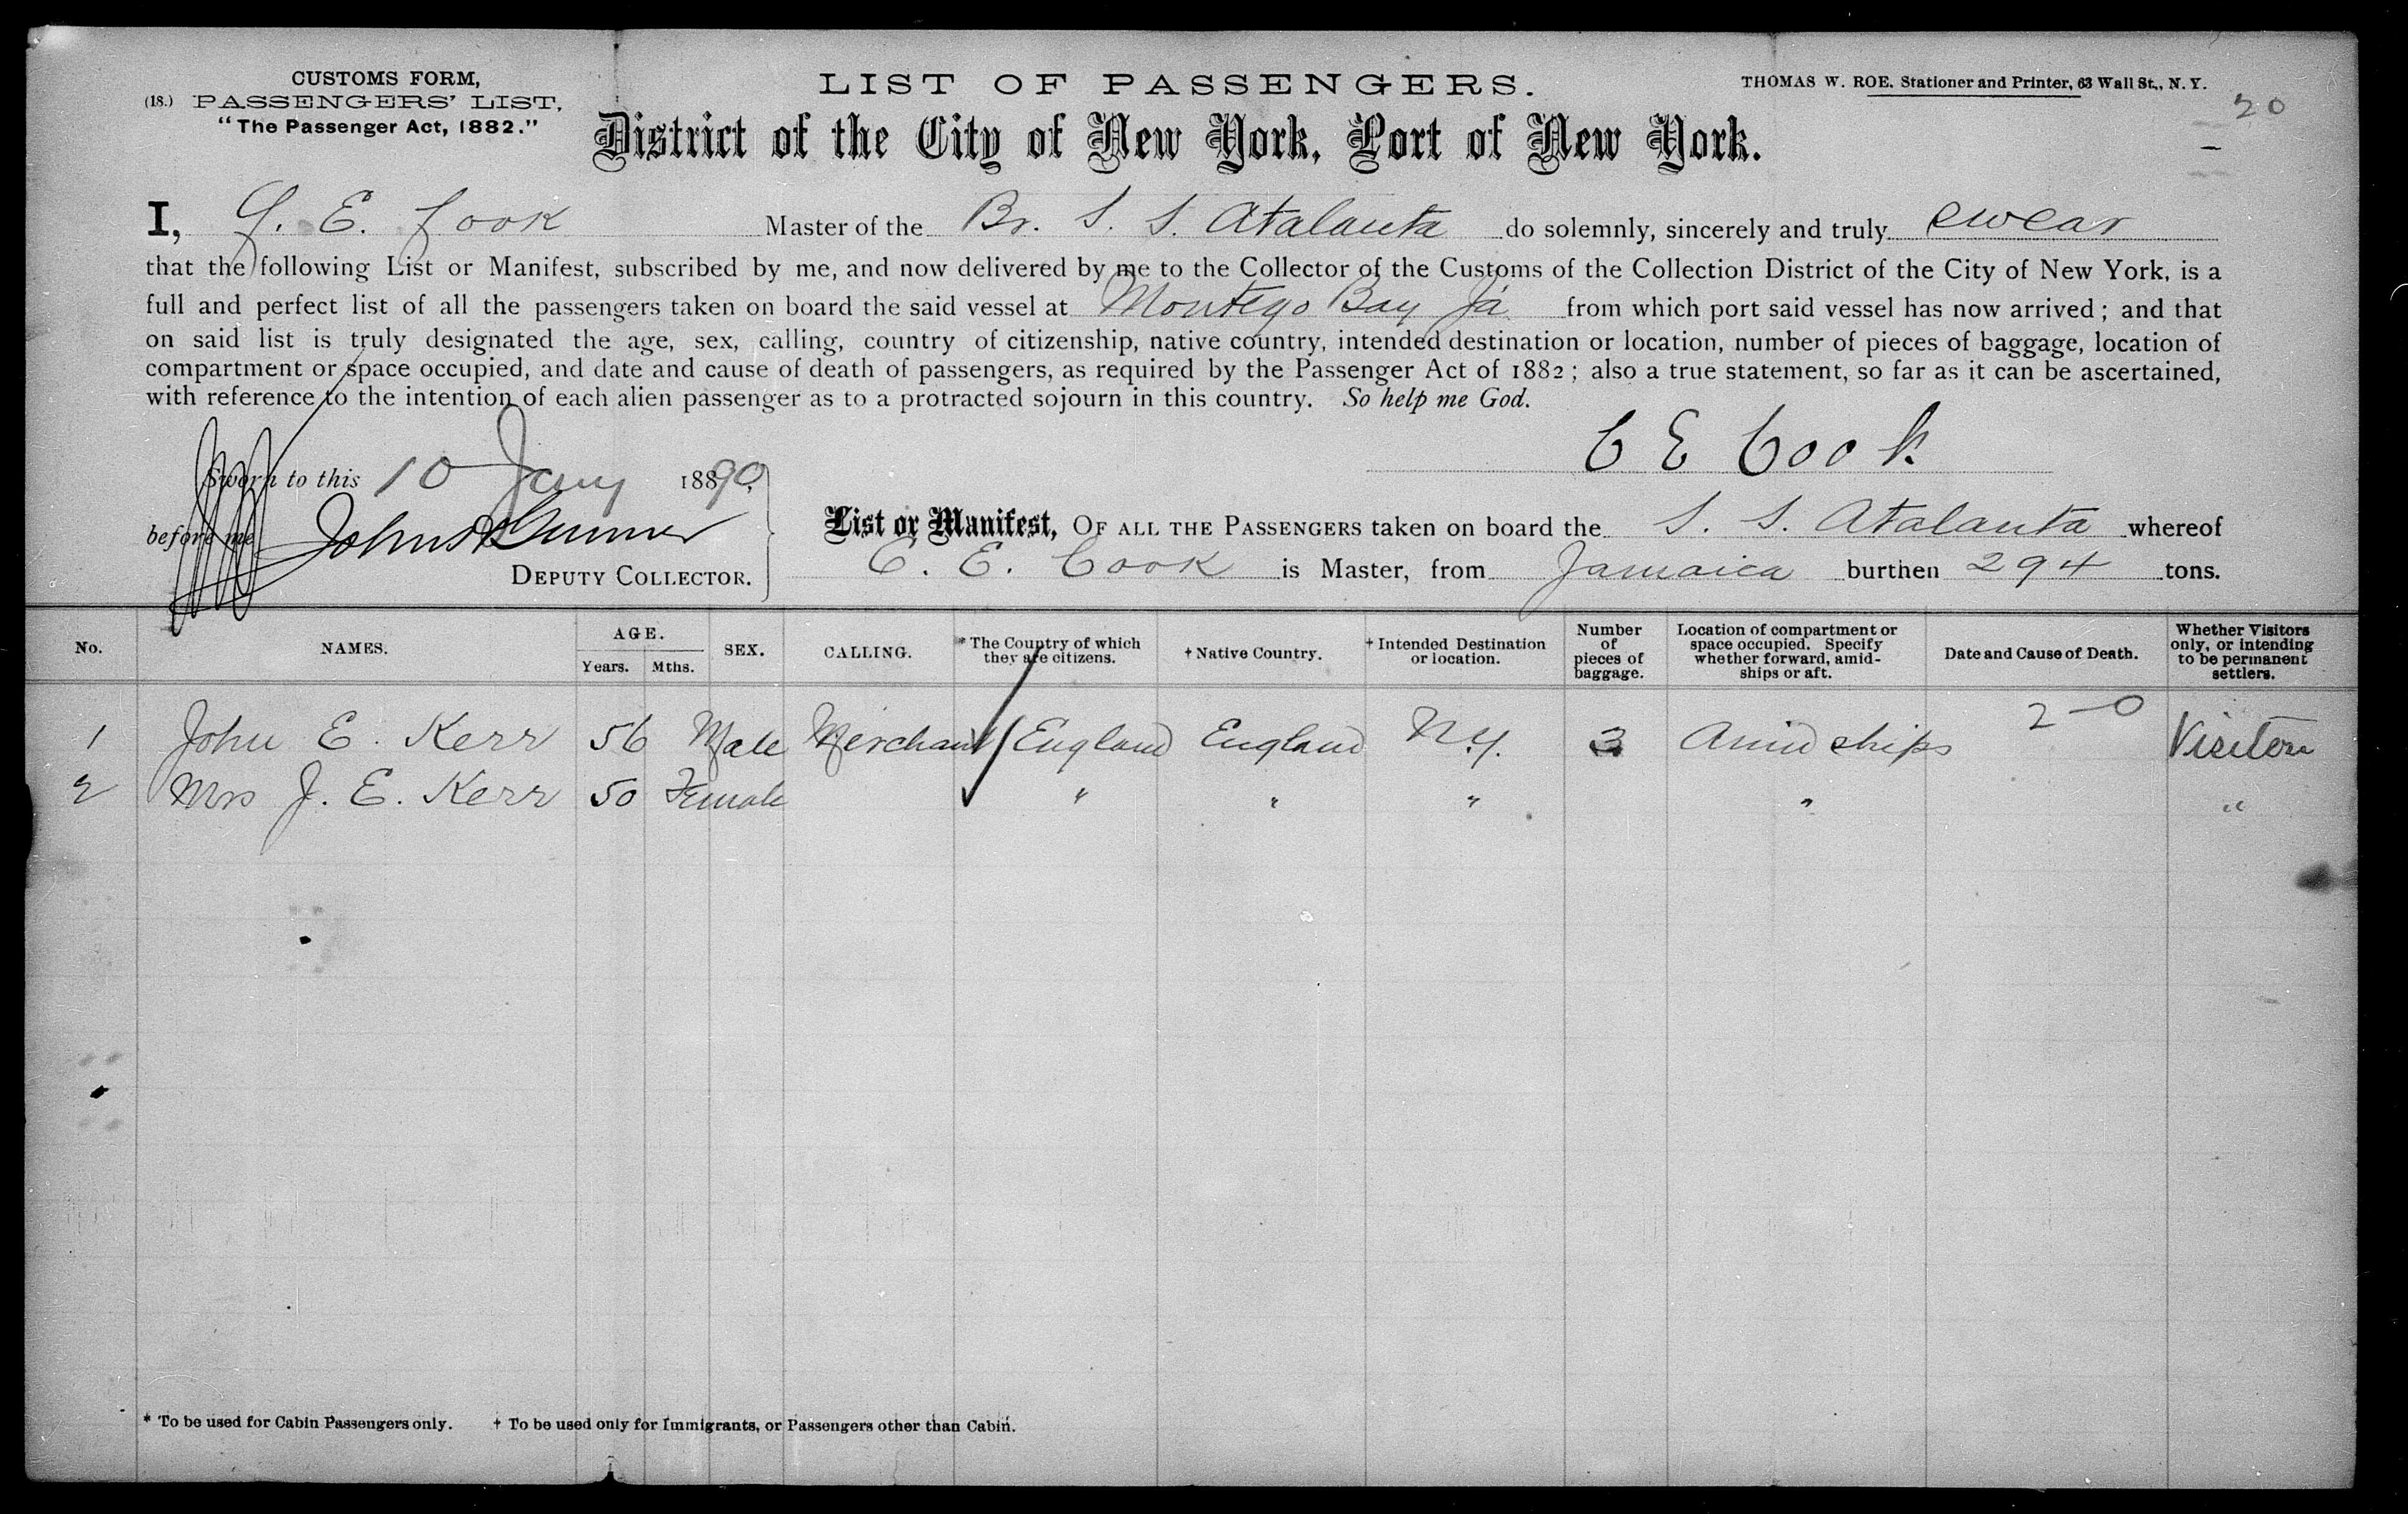 CUSTOMS FORM,
(18.) PASSENGERS' LIST,
"The Passenger Act, 1882."
LIST OF PASSENGERS.
THOMAS W. ROE, Stationer and Printer, 63 Wall St., N. Y.
20
District of the City of New York, Port of New York.
I, E. Cook Master of the Br. S. S. Atalanta do solemnly, sincerely and truly swear
that the following List or Manifest, subscribed by me, and now delivered by me to the Collector of the Customs of the Collection District of the City of New York, is a
full and perfect list of all the passengers taken on board the said vessel at Montego Bay Ja from which port said vessel has now arrived; and that
on said list is truly designated the age, sex, calling, country of citizenship, native country, intended destination or location, number of pieces of baggage, location of
compartment or space occupied, and date and cause of death of passengers, as required by the Passenger Act of 1882; also a true statement, so far as it can be ascertained,
with reference to the intention of each alien passenger as to a protracted sojourn in this country. So help me God.
C E Cook
Sworn to this 10 Jany 1890
before me John
DEPUTY COLLECTOR.
List or Manifest, OF ALL THE PASSENGERS taken on board the S. S. Atalanta whereof
C. E. Cook is Master, from Jamaica burthen 294 tons.
No. NAMES. AGE. Years. Mths. SEX. CALLING. * The Country of which they are citizens. † Native Country. † Intended Destination or location. Number of pieces of baggage. Location of compartment or space occupied. Specify whether forward, amidships or aft. Date and Cause of Death. Whether Visitors only, or intending to be permanent settlers.
2-0
1 John E. Kerr 56 Male Merchant England England N.Y. 3 Amid ships Visitors
2 Mrs J. E. Kerr 50 Female " " " " "
* To be used for Cabin Passengers only. † To be used only for Immigrants, or Passengers other than Cabin.